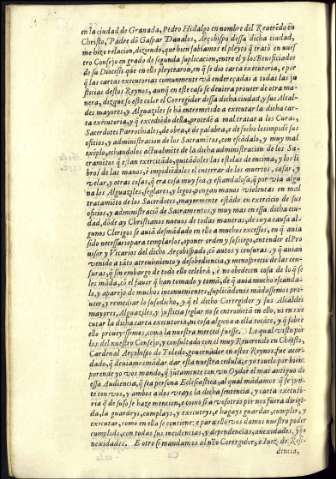 en la ciudad de Granada, Pedro Hidalgo en nombre del Reuerẽdo en
Christo, Padre dõ Gaspar Daualos, Arçobispo dessa dicha ciudad,
me hizo relacion, diziendo, que bien sabiamos el pleyto q̃ trató en nues
tro Consejo en grado de segunda suplicacion, entre el y los Beneficiados
de su Diocesis que en ella pleytaron, en q̃ se dio carta executoria, e por
q̃ las cartas executorias comunmente vã endereçadas a todas las ju
sticias destos Reynos, aunq̃ en este caso se deuiera proueer de otra ma
nera, dizque so este color el Corregidor dessa dicha ciudad, y sus Alcal
des mayores, y Alguaziles se hã entremetido a executar la dicha car-
ta executoria, y q̃ excediendo della, procedẽ a mal tratar a los Curas,
Sacerdotes Parrochiales, de obra, e de palabra, e de fecho les impidẽ sus
oficios, y administracion de los Sacramentos, con escãdalo, y muy mal
exemplo, echandolos actualmẽte de la dicha administracion de los Sa-
cramẽtos q̃ estan exercitãdo, quitãdoles las estolas de encima, y los li-
bros de las manos, e impidiẽdoles el interrar de los muertos, casar, y
velar, y otras cosas, q̃ era cosa muy fea, y escandalosa q̃ por via algu
na los Alguaziles, seglares, y legos pongan manos violentas en mal
tratamiẽto de los Sacerdotes, mayormente estãdo en exercicio de sus
oficios, y administraciõ de Sacramentos, y muy mas en essa dicha ciu-
dad, dõde ay Christianos nueuos de todas maneras, de cuya causa al-
gunos Clerigos se auiã desmãdado en ello a muchos excessos, en q̃ auia
sido necessario para templarlos, poner orden y sossiego, entender el Pro
uisor y Vicarios del dicho Arçobispado, cõ autos y censuras, y q̃ auian
venido a tãto atreuimiento y desobediencia, y menosprecio de las cen-
suras, q̃ sin embargo de todo ello celebrã, e no obedecen cosa de lo q̃ se
les mãda, cõ el fauor q̃ han tomado y tomã, de q̃ auia mucho escanda-
lo, y aparejo de muchos inconuenientes, suplicãdonos mãdassemos proue-
uer, y remediar lo susodicho, y q̃ el dicho Corregidor y sus Alcaldes
mayores, Alguaziles, y justicia seglar no se entremetã en ello, ni en exe
cutar la dicha carta executoria, ni cosa alguna a ella tocãte, y q̃ sobre
ello proueyessemos, como la nuestra merced fuesse. Lo qual visto por
los del nuestro Consejo, y consultado con el muy Reuerẽdo en Christo,
Cardenal Arçobispo de Toledo, gouernador en estos Reynos, fue acor-
dado, q̃ deuiamos mandar dar esta nuestra cedula, e yo tuuelo por bien,
porende yo vos mando, q̃ juntamente con vn Oydor el mas antiguo de
essa Audiencia, q̃ sea persona Eclesiastica, al qual mãdamos q̃ se jun-
te con vos, y ambos a dos veays la dicha sentencia, y carta executo-
ria q̃ de suso se haze mencion, e como si a vosotros por nos fuera dirigi-
da, la guardeys, cumplays, y executeys, e hagays guardar, cumplir, y
executar, como en ella se contiene: e para ello vos damos nuestro poder
cumplido, con todas sus incidencias, y dependencias, anexidades, y co-
nexidades. E otrosi mandamos al nr̃o Corregidor, o Iuez de Resi-
dencia,